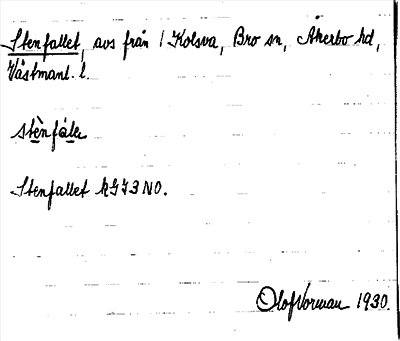 Stenfallet, avs från 1 Kolsva, Bro sn, Åkerbo hd,
Västmanl. l.
stènfále
Stenfallet
Olof Norman 1930.